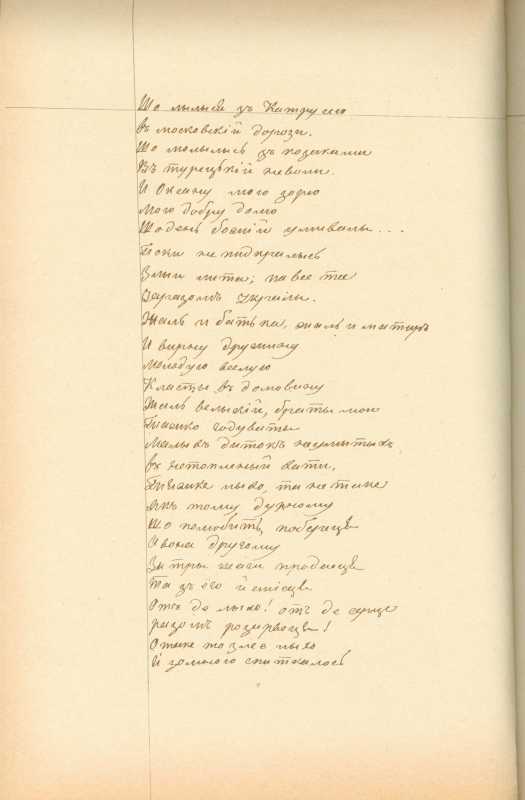 Що лылыся зъ Катрусею
въ московскій дорози.
Що молылысь зъ козаками
Въ турецькій неволи.
И Оксану мою зорю
Мою добру долю
Що день божій умывалы...
Поки не пидкралысь
Злыи лита; та все те
Заразомъ украли.
Жаль и батька, жаль и матиръ
И вирну дружину
Молодую веселую
Класты въ домовину
Жаль велыкій, браты мои
Тяжко годуваты
Малыхъ дитокъ неумытыхъ
въ нетопленый хати,
Тяжке лыхо, та не таке
Якъ тому дурному
Що полюбить, побереця
А вона другому
За тры шаги продаеця
Та зъ его й сміеця
Отъ де лыхо! отъ де серце
разомъ розирвеця!
Отаке то злее лыхо
Й зомною спиткалось